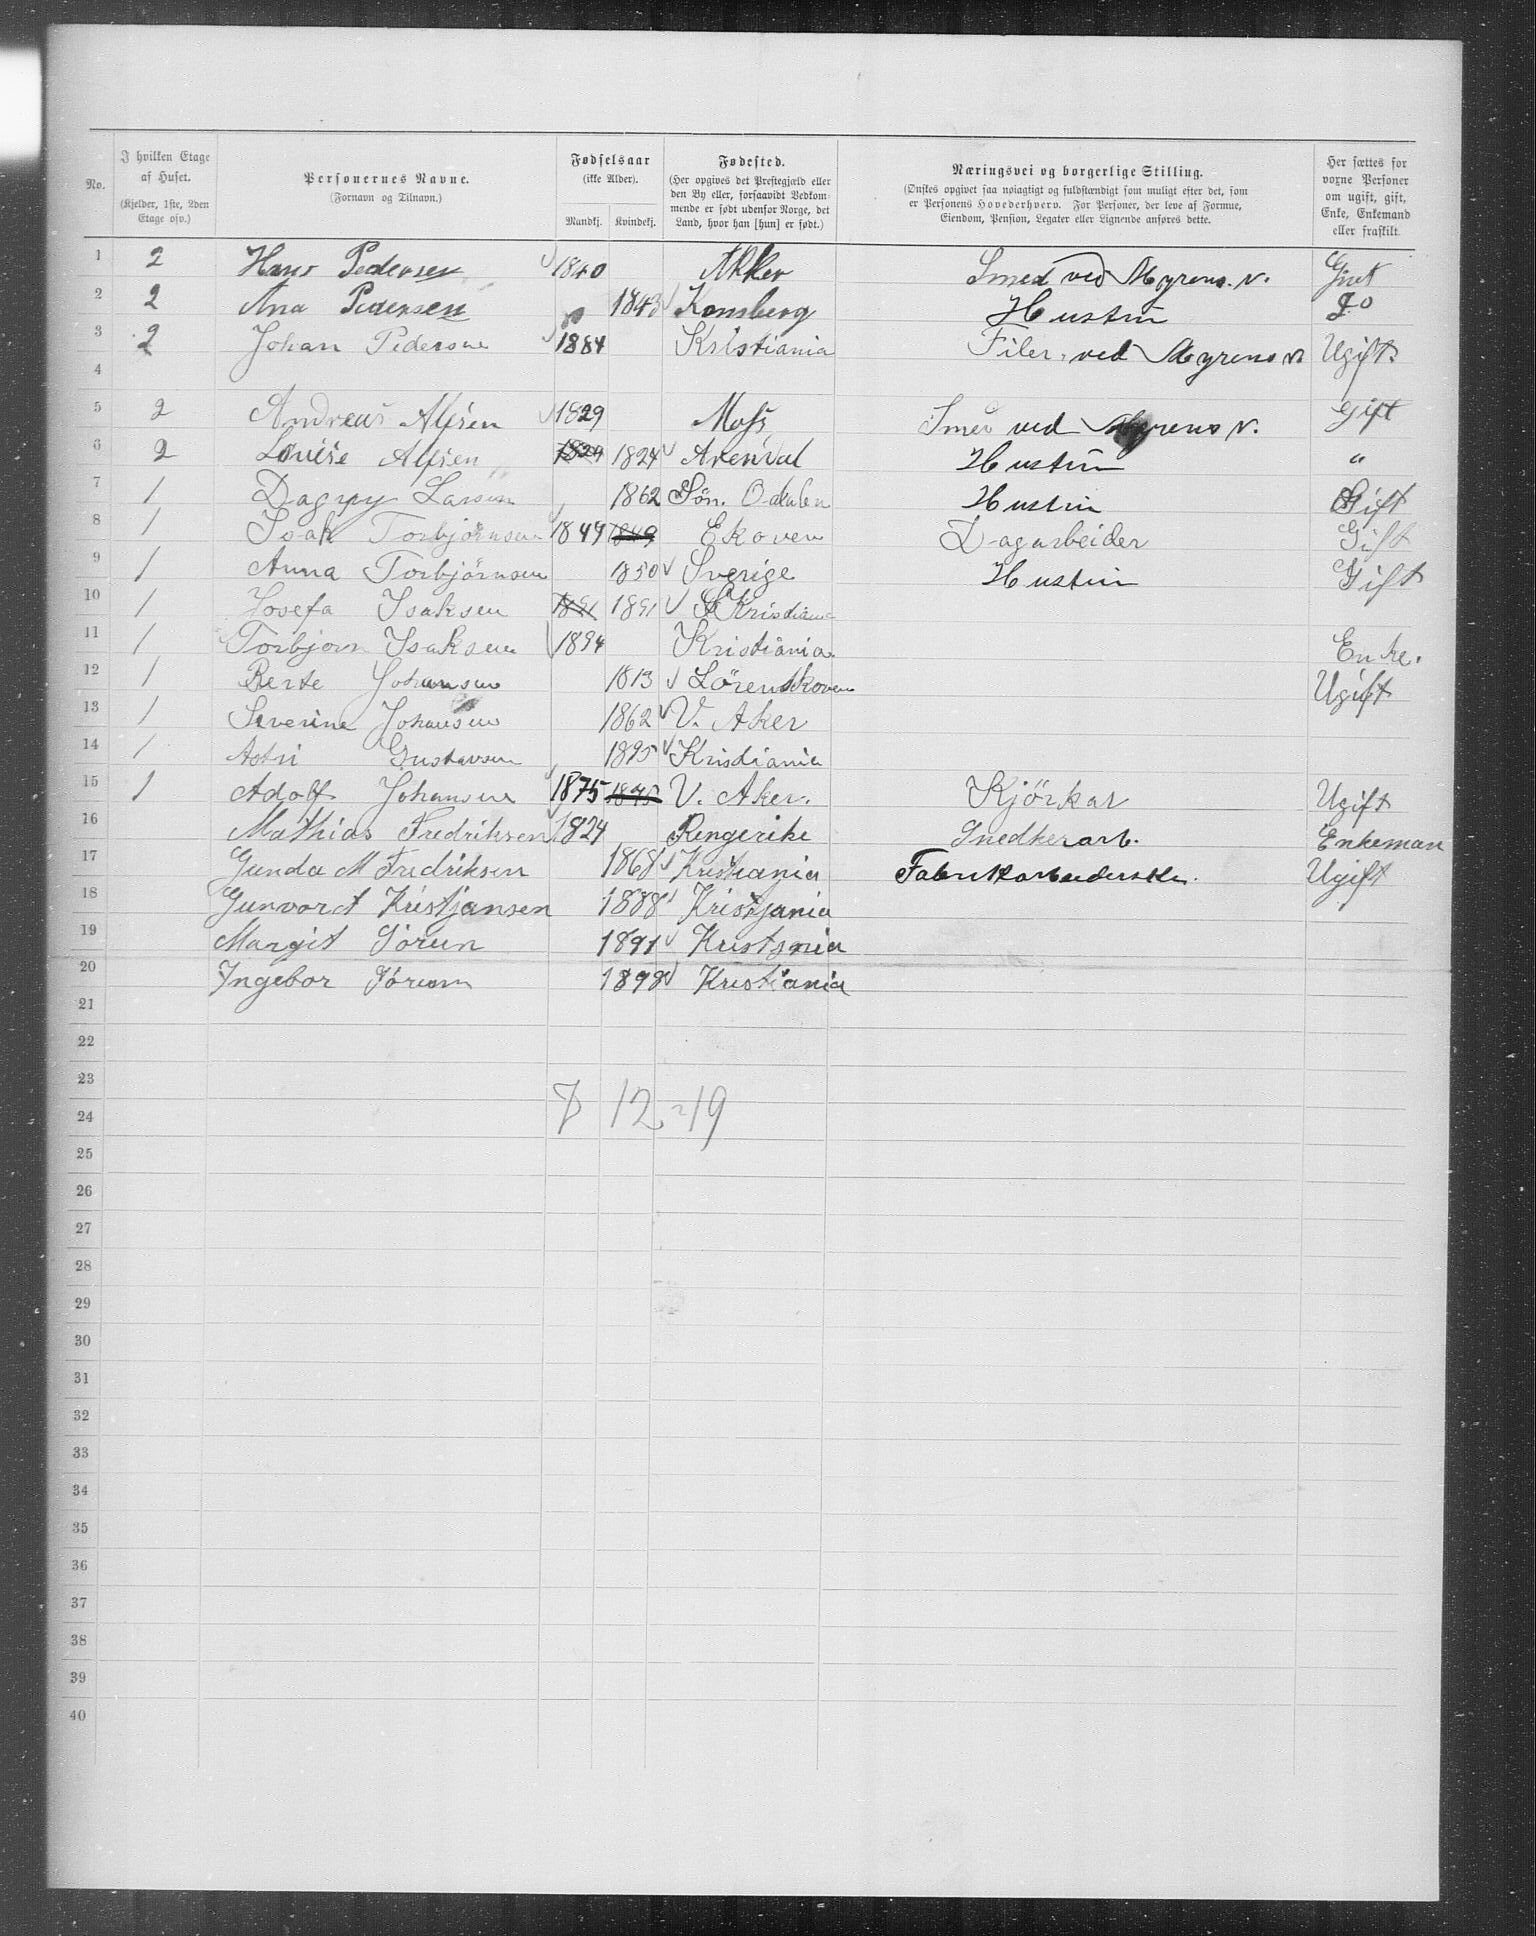 No. I hvilken Etage af Huset. (Kjelder, 1ste, 2den Etage osv.) Personernes Navne. (Fornavn og Tilnavn.) Fødselsaar (ikke Alder). Mandkj. Kvindekj. Fødested. (Her opgives det Prestegjæld eller den By eller, forsaavidt Vedkommende er født udenfor Norge, det Land, hvor han [hun] er født.) Næringsvei og borgerlige Stilling. (Ønskes opgivet saa nøiagtigt og fuldstændigt som muligt efter det, som er Personens Hovederhverv. For Personer, der leve af Formue, Eiendom, Pension, Legater eller Lignende anføres dette. Her sættes for voxne Personer om ugift, gift, Enke, Enkemand eller fraskilt.
1 2 Hans Pedersen 1840 Akker Smed ved Myrens. V. Gift
2 2 Ana Pedersen 1843 Konsberg Hustru Do
3 2 Johan Pedersne 1884 Kristiania Filer ved Myrens V. Ugift.
4
5 2 Andreas Alfsen 1829 Moss Smed ved Myrens V. Gift
6 2 Lovise Alfsen 1829 1824 Arendal Hustru "
7 1 Dagny Larsen 1862 Søn. Odalen Hustru Gift
8 1 Isak Torbjörnsen 1849 1849 Ekoven Dagarbeider Gift
9 1 Anna Torbjörnsen 1850 Sverige Hustru Gift
10 1 Josefa Isaksen 1891 1891 Kristiania
11 1 Torbjorn Isaksen 1894 Kristiania. Enke.
12 1 Berte Johansen 1813 Lörenskoven Ugift
13 1 Severine Johansen 1862 V. Aker
14 1 Astri Gustavsen 1895 Kristiania
15 1 Adolf Johansen 1875 1875 V. Aker. Kjörkar Ugift
16 Mathias Fredriksen 1824 Ringerike Snedkerarb. Enkeman
17 Gunda M Fredriksen 1868 Kristiania Fabrikarbeiderske. Ugift
18 Gunvord Kristjansen 1888 Kristjania
19 Margit Sörum 1891 Kristania
20 Ingebor Sörum 1898 Kristiania
21
22
23
7 12 = 19
24
25
26
27
28
29
30
31
32
33
34
35
36
37
38
39
40